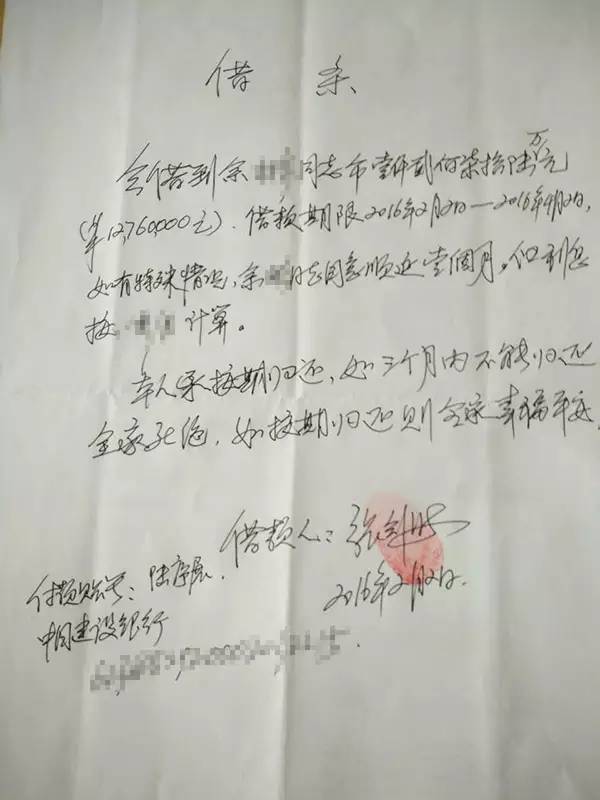 借条
今借到余 同志币壹仟贰佰柒拾陆万元
(¥12,760,000元).借款期限2016年2月2日—2016年4月2日,
如有特殊情况,余 同志同意顺延壹個月,但利息
按 计算。
本人承按期归还,如三个月内不能归还
全家死绝,如按期归还则全家幸福平安.
借款人:张
2016年2月2日.
付款账号:陆
中国建设银行